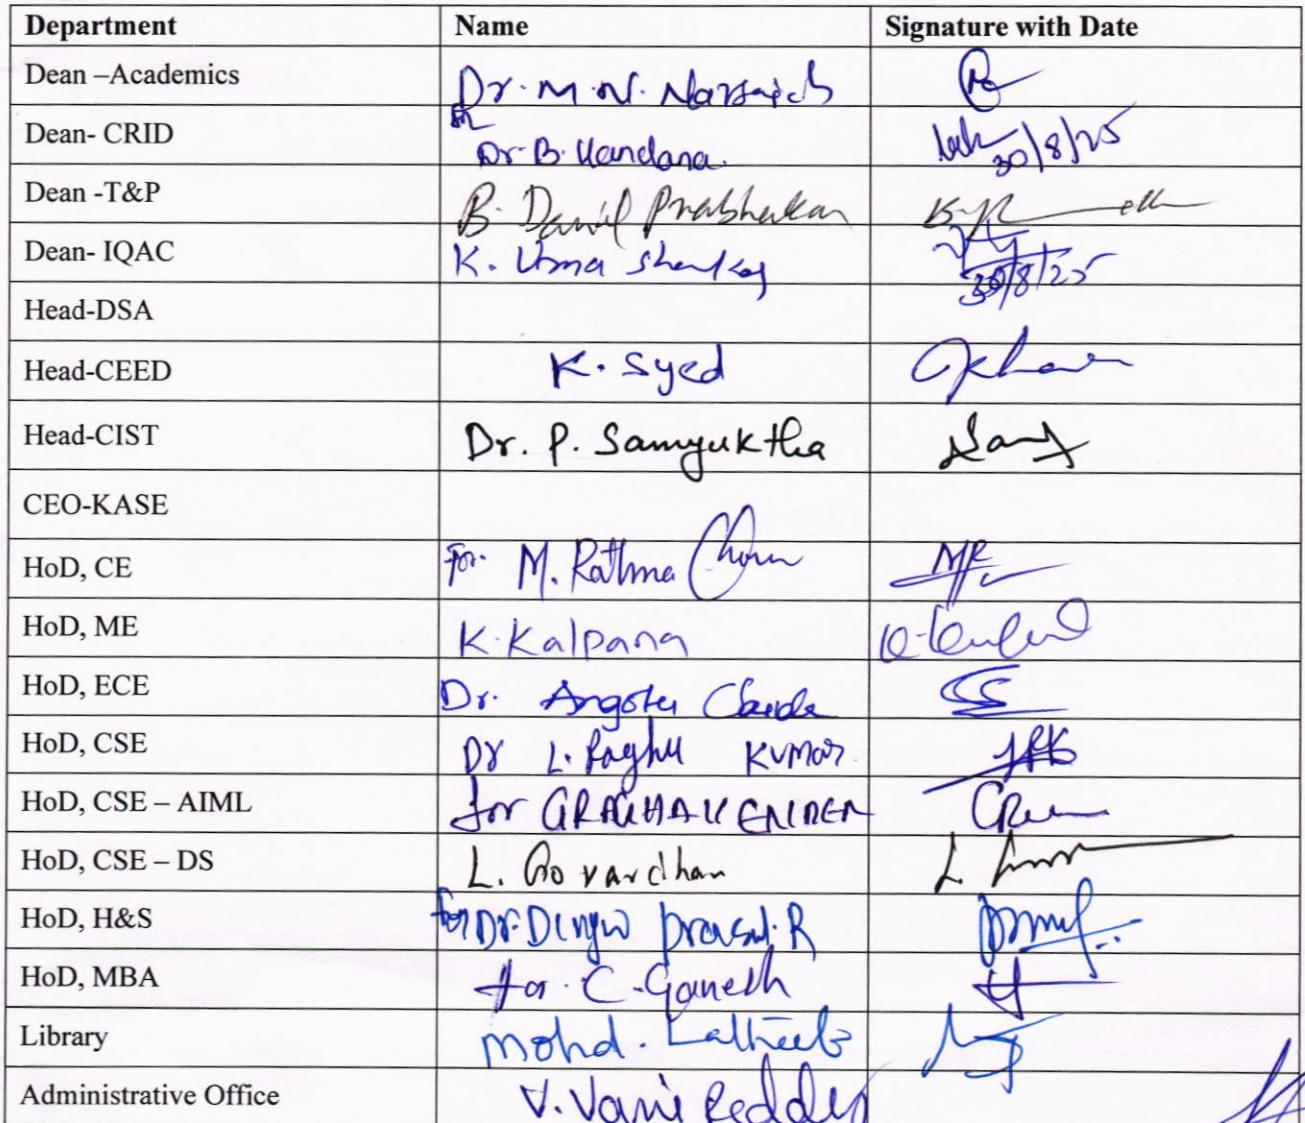 Department Name Signature with Date
Dean –Academics Dr. M. N. Narsaiah
Dean- CRID Dr. B. Vandana. 30/8/25
Dean -T&P B. Daniel Prabhakar
Dean- IQAC K. Uma Shankar 30/8/25
Head-DSA
Head-CEED K. Syed
Head-CIST Dr. P. Samyuktha
CEO-KASE
HoD, CE For. M. Rathna
HoD, ME K. Kalpana
HoD, ECE Dr.
HoD, CSE Dr L. Raghu Kumar
HoD, CSE – AIML for
HoD, CSE – DS L. Govardhan L.
HoD, H&S for Dr. Prasad. R
HoD, MBA for. C. Ganesh
Library Mohd.
Administrative Office V. Vani Reddy